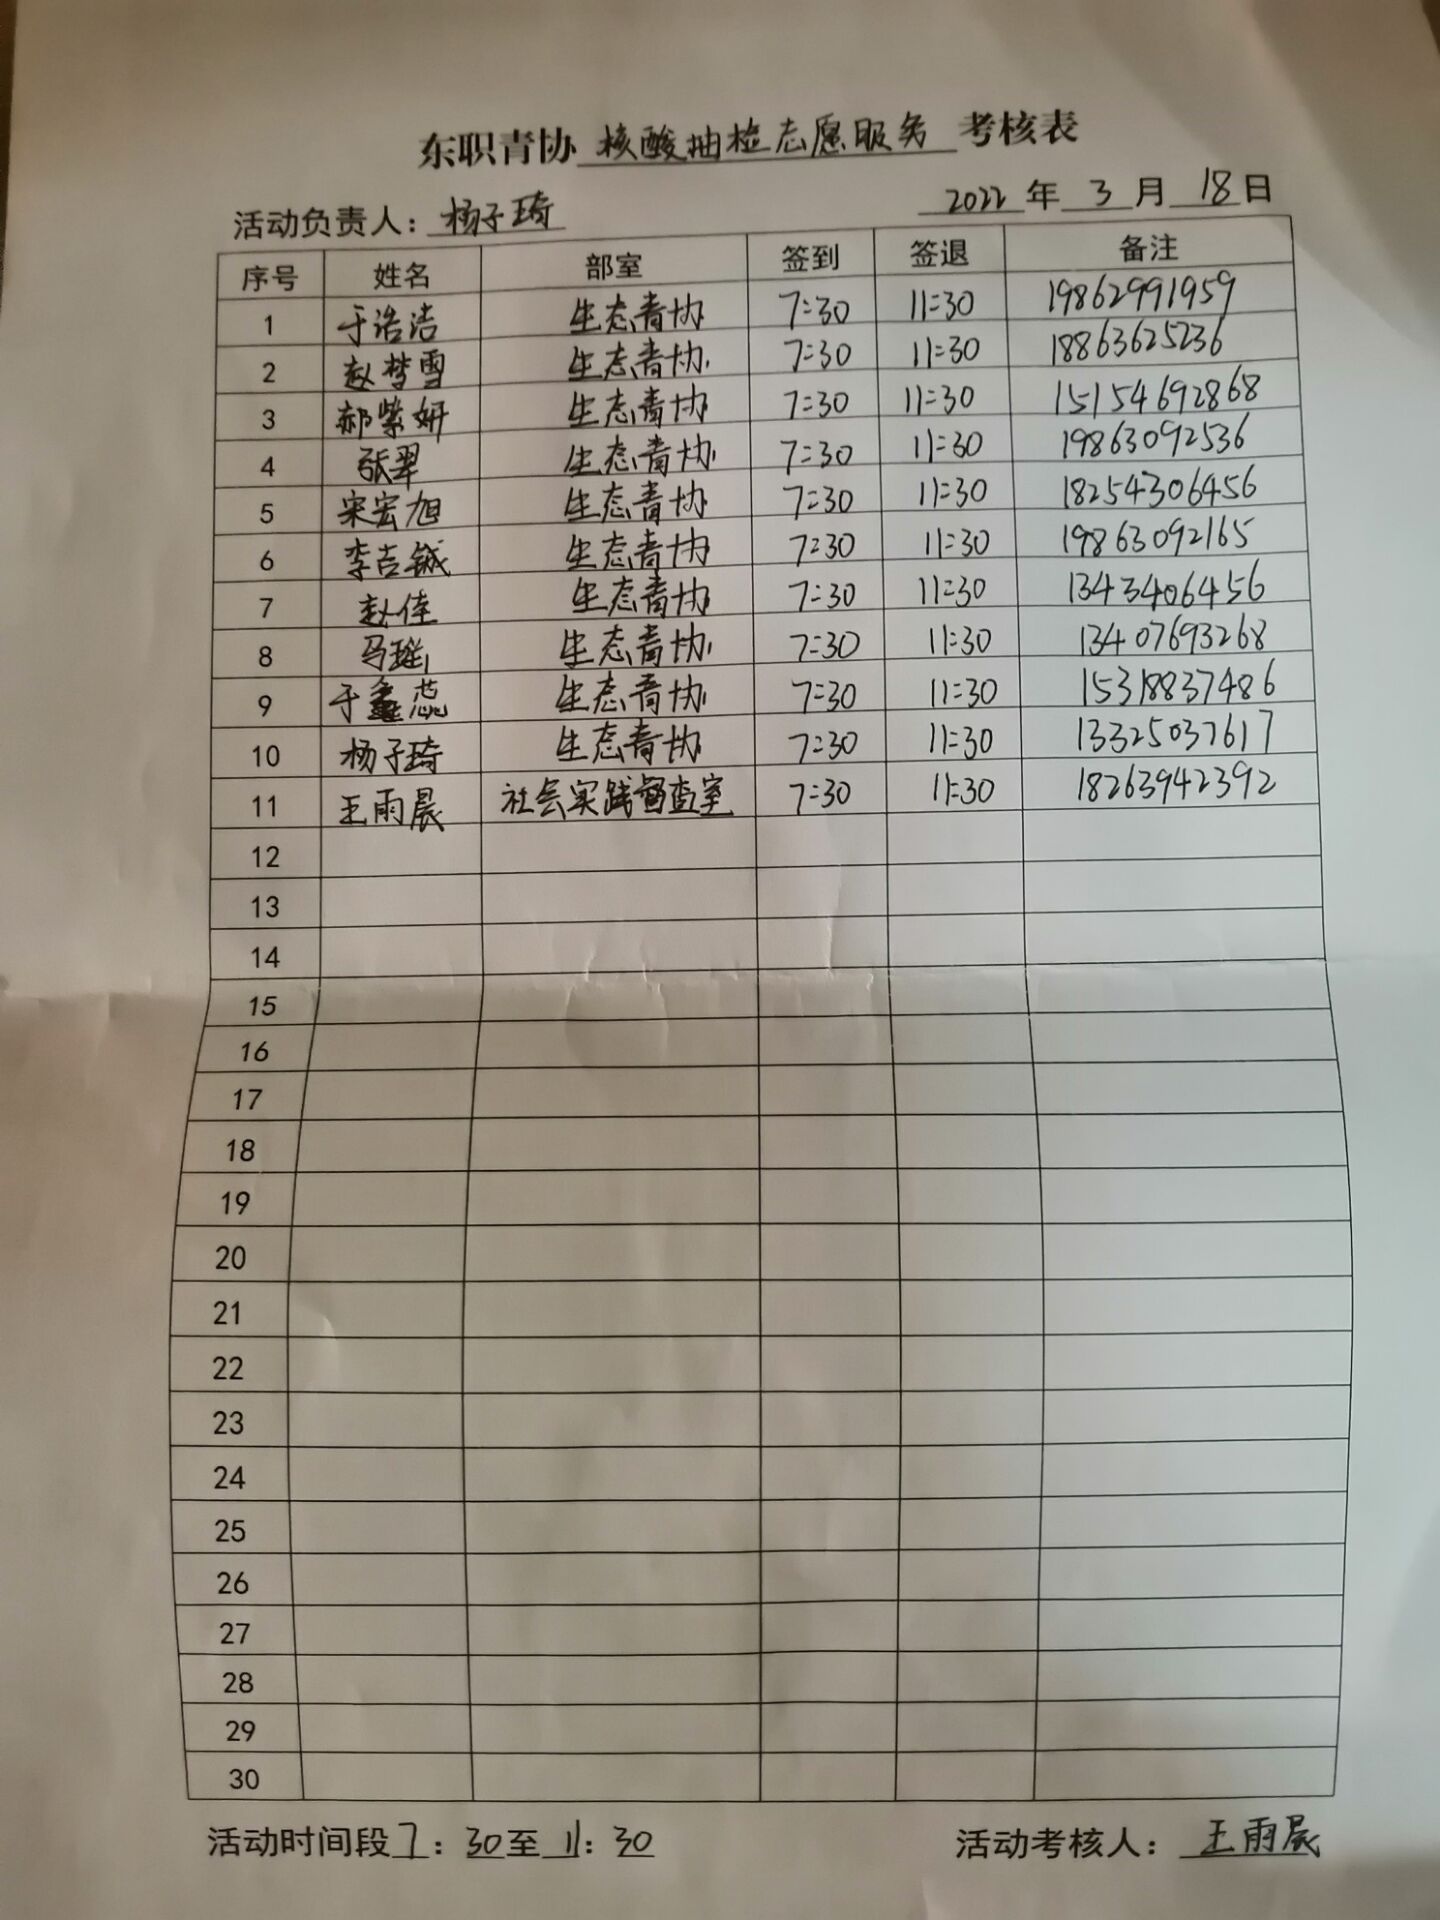 东职青协 核酸抽检志愿服务 考核表
活动负责人：杨子琦 2022年 3 月 18日
序号 姓名 部室 签到 签退 备注
1 于浩洁 生态青协 7:30 11:30 19862991959
2 赵梦雪 生态青协 7:30 11:30 18863625236
3 郝紫妍 生态青协 7:30 11:30 15154692868
4 张翠 生态青协 7:30 11:30 19863092536
5 宋宏旭 生态青协 7:30 11:30 18254306456
6 李吉铖 生态青协 7:30 11:30 19863092165
7 赵佳 生态青协 7:30 11:30 1343406456
8 马瑶 生态青协 7:30 11:30 13407693268
9 于鑫蕊 生态青协 7:30 11:30 15318837486
10 杨子琦 生态青协 7:30 11:30 13325037617
11 王雨晨 社会实践督查室 7:30 11:30 18263942392
12
13
14
15
16
17
18
19
20
21
22
23
24
25
26
27
28
29
30
活动时间段 7：30至 11：30 活动考核人：王雨晨